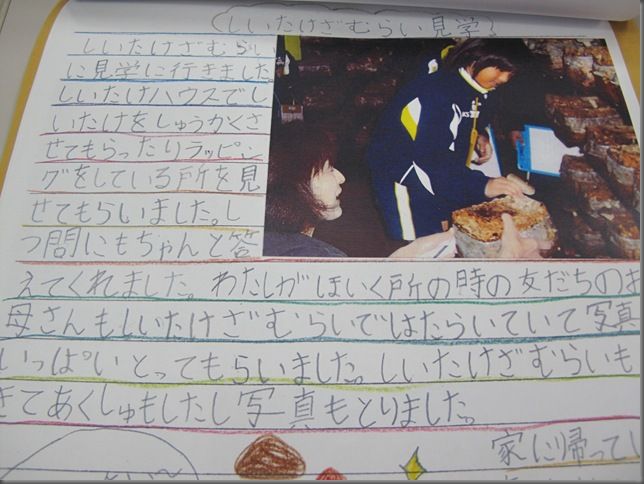 しいたけざむらい見学
しいたけざむらい
に見学に行きました。
しいたけハウスでし
いたけをしゅうかくさ
せてもらったりラッピン
グをしている所を見
せてもらいました。し
つ問にもちゃんと答
えてくれました。わたしがほいく所の時の友だちのお
母さんもしいたけざむらいではたらいていて写真
いっぱいとってもらいました。しいたけざむらいも
きてあくしゅもしたし写真もとりました。
家に帰ってい